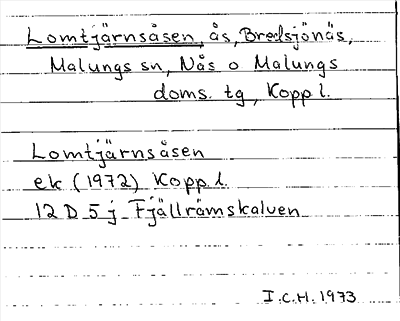 Lomtjärnsåsen, ås, Bredsjönäs,
Malungs sn, Nås o Malungs
doms. tg, Kopp l.
Lomtjärnsåsen
ek (1972) Kopp l.
12 D 5 j Fjällrämskalven
I.C.H. 1973